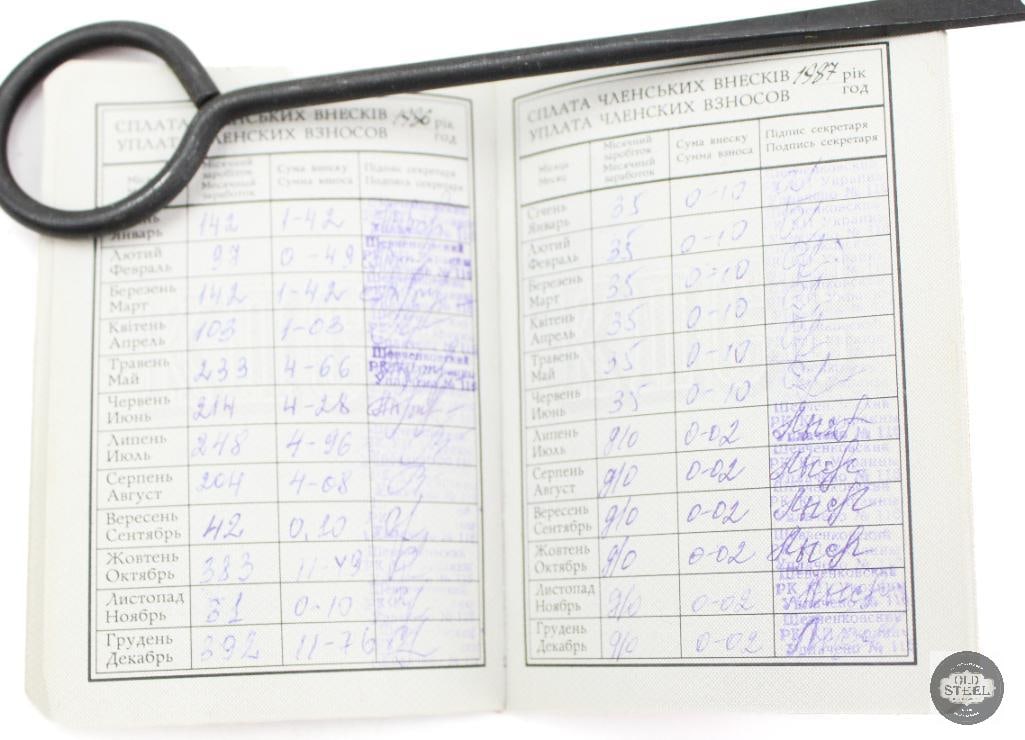 СПЛАТА ЧЛЕНСЬКИХ ВНЕСКІВ 1986 рік
УПЛАТА ЧЛЕНСКИХ ВЗНОСОВ год
Місячний заробіток Сума внеску Підпис секретаря
Месячный заработок Сумма взноса Подпись секретаря
Январь 142 1-42
Лютий
Февраль 97 0-49
Березень
Март 142 1-42
Квітень
Апрель 103 1-03
Травень
Май 233 4-66
Червень
Июнь 214 4-28
Липень
Июль 248 4-96
Серпень
Август 204 4-08
Вересень
Сентябрь 42 0,10
Жовтень
Октябрь 383
Листопад
Ноябрь 31 0-10
Грудень
Декабрь 392 11-76
СПЛАТА ЧЛЕНСЬКИХ ВНЕСКІВ 1987 рік
УПЛАТА ЧЛЕНСКИХ ВЗНОСОВ год
Місяць Місячний заробіток Сума внеску Підпис секретаря
Месяц Месячный заработок Сумма взноса Подпись секретаря
Січень
Январь 35 0-10
Лютий
Февраль 35 0-10
Березень
Март 35 0-10
Квітень
Апрель 35 0-10
Травень
Май 35 0-10
Червень
Июнь 35 0-10
Липень
Июль д/о 0-02
Серпень
Август д/о 0-02
Вересень
Сентябрь д/о 0-02
Жовтень
Октябрь д/о 0-02
Листопад
Ноябрь д/о 0-02
Грудень
Декабрь д/о 0-02
OLD
STEEL